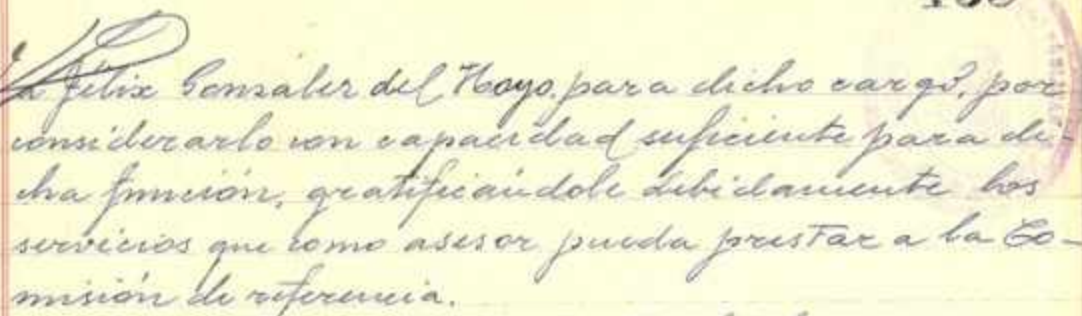 a Félix Gonsaler del Hoyo, para dicho cargo, por
considerarlo con capacidad suficiente para di-
cha función, gratificándole debidamente los
servicios que como asesor pueda prestar a la Co-
misión de referencia.